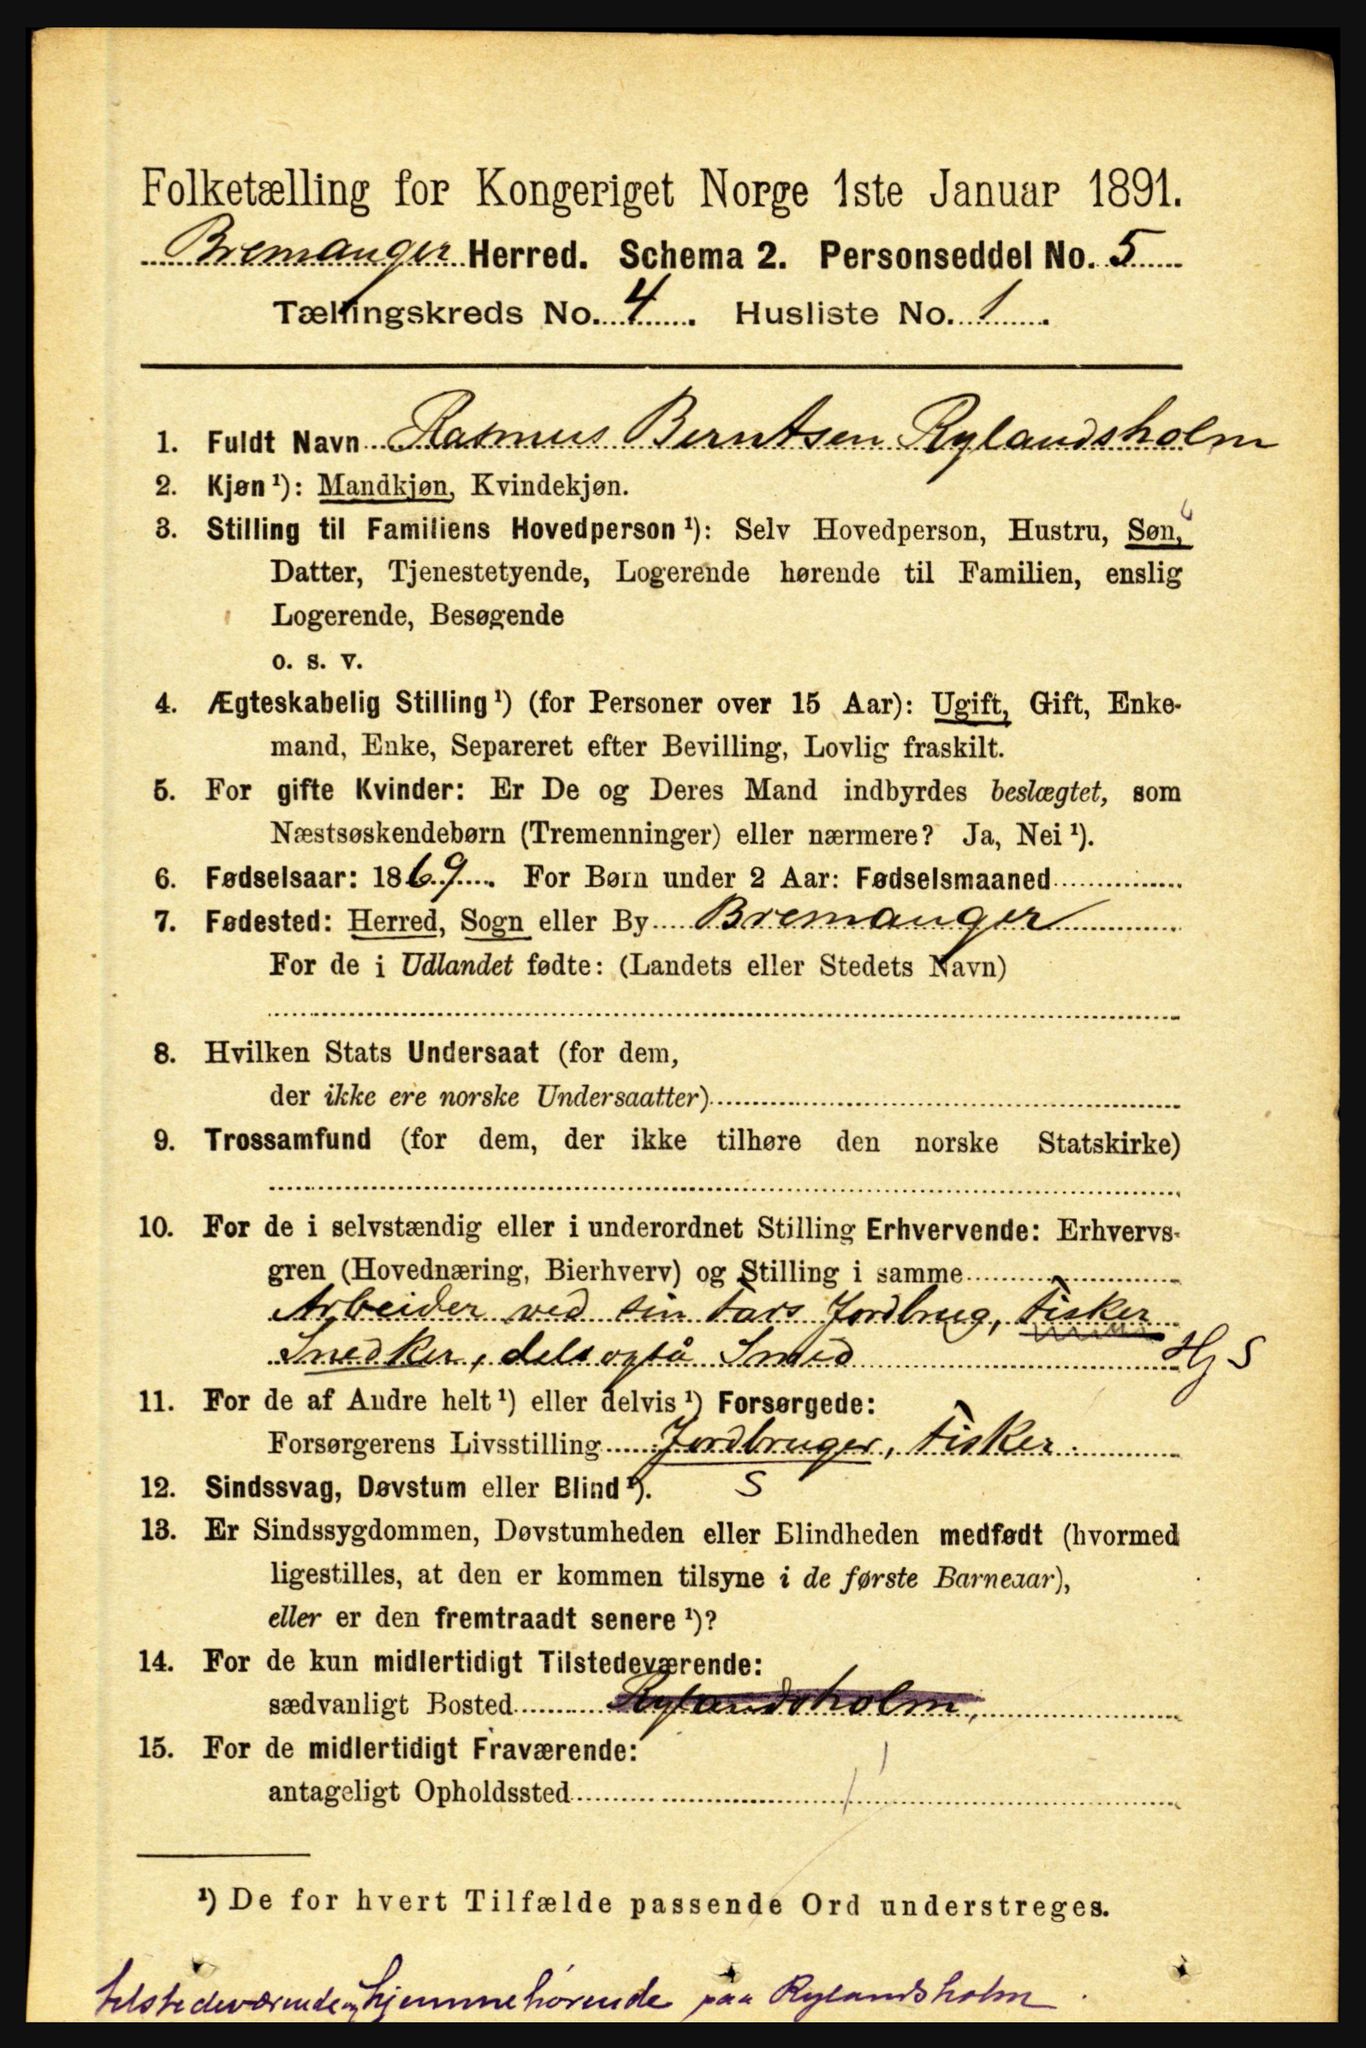 Folketælling for Kongeriget Norge 1ste Januar 1891.
Bremanger Herred. Schema 2. Personseddel No. 5
Tællingskreds No. 4. Husliste No. 1.
1. Fuldt Navn Rasmus Berntsen Rylandsholm
2. Kjøn¹): Mandkjøn, Kvindekjøn.
3. Stilling til Familiens Hovedperson¹): Selv Hovedperson, Hustru, Søn,
Datter, Tjenestetyende, Logerende hørende til Familien, enslig
Logerende, Besøgende
o. s. v.
4. Ægteskabelig Stilling¹) (for Personer over 15 Aar): Ugift, Gift, Enke-
mand, Enke, Separeret efter Bevilling, Lovlig fraskilt.
5. For gifte Kvinder: Er De og Deres Mand indbyrdes beslægtet, som
Næstsøskendebørn (Tremenninger) eller nærmere? Ja, Nei¹).
6. Fødselsaar: 1869. For Børn under 2 Aar: Fødselsmaaned
7. Fødested: Herred, Sogn eller By Bremanger
For de i Udlandet fødte: (Landets eller Stedets Navn)
8. Hvilken Stats Undersaat (for dem,
der ikke ere norske Undersaatter)
9. Trossamfund (for dem, der ikke tilhøre den norske Statskirke)
10. For de i selvstændig eller i underordnet Stilling Erhvervende: Erhvervs-
gren (Hovednæring, Bierhverv) og Stilling i samme
Arbeider ved sin Fars Jordbrug, Fisker
Snedker, dels også Smed Hj S
11. For de af Andre helt¹) eller delvis¹) Forsørgede:
Forsørgerens Livsstilling Jordbruger, Fisker.
12. Sindssvag, Døvstum eller Blind¹). S
13. Er Sindssygdommen, Døvstumheden eller Blindheden medfødt (hvormed
ligestilles, at den er kommen tilsyne i de første Barneaar),
eller er den fremtraadt senere¹)?
14. For de kun midlertidigt Tilstedeværende:
sædvanligt Bosted Rylandsholm,
15. For de midlertidigt Fraværende:
antageligt Opholdssted
¹) De for hvert Tilfælde passende Ord understreges.
tilstedeværende og hjemmehørende paa Rylandsholm.